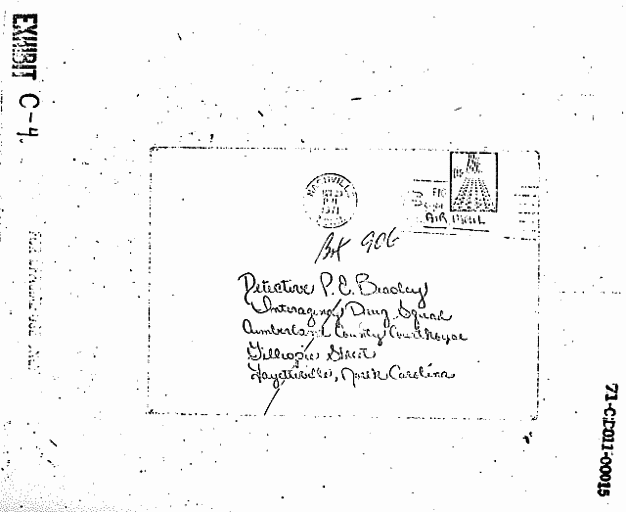 EXHIBIT C-4.
NASHVILLE
1971
AIR MAIL
Box 906
Detective P. E. Bradley
Interagency Drug Squad
Cumberland County Courthouse
Gillespie Street
Fayetteville, North Carolina
71-CID011-00015